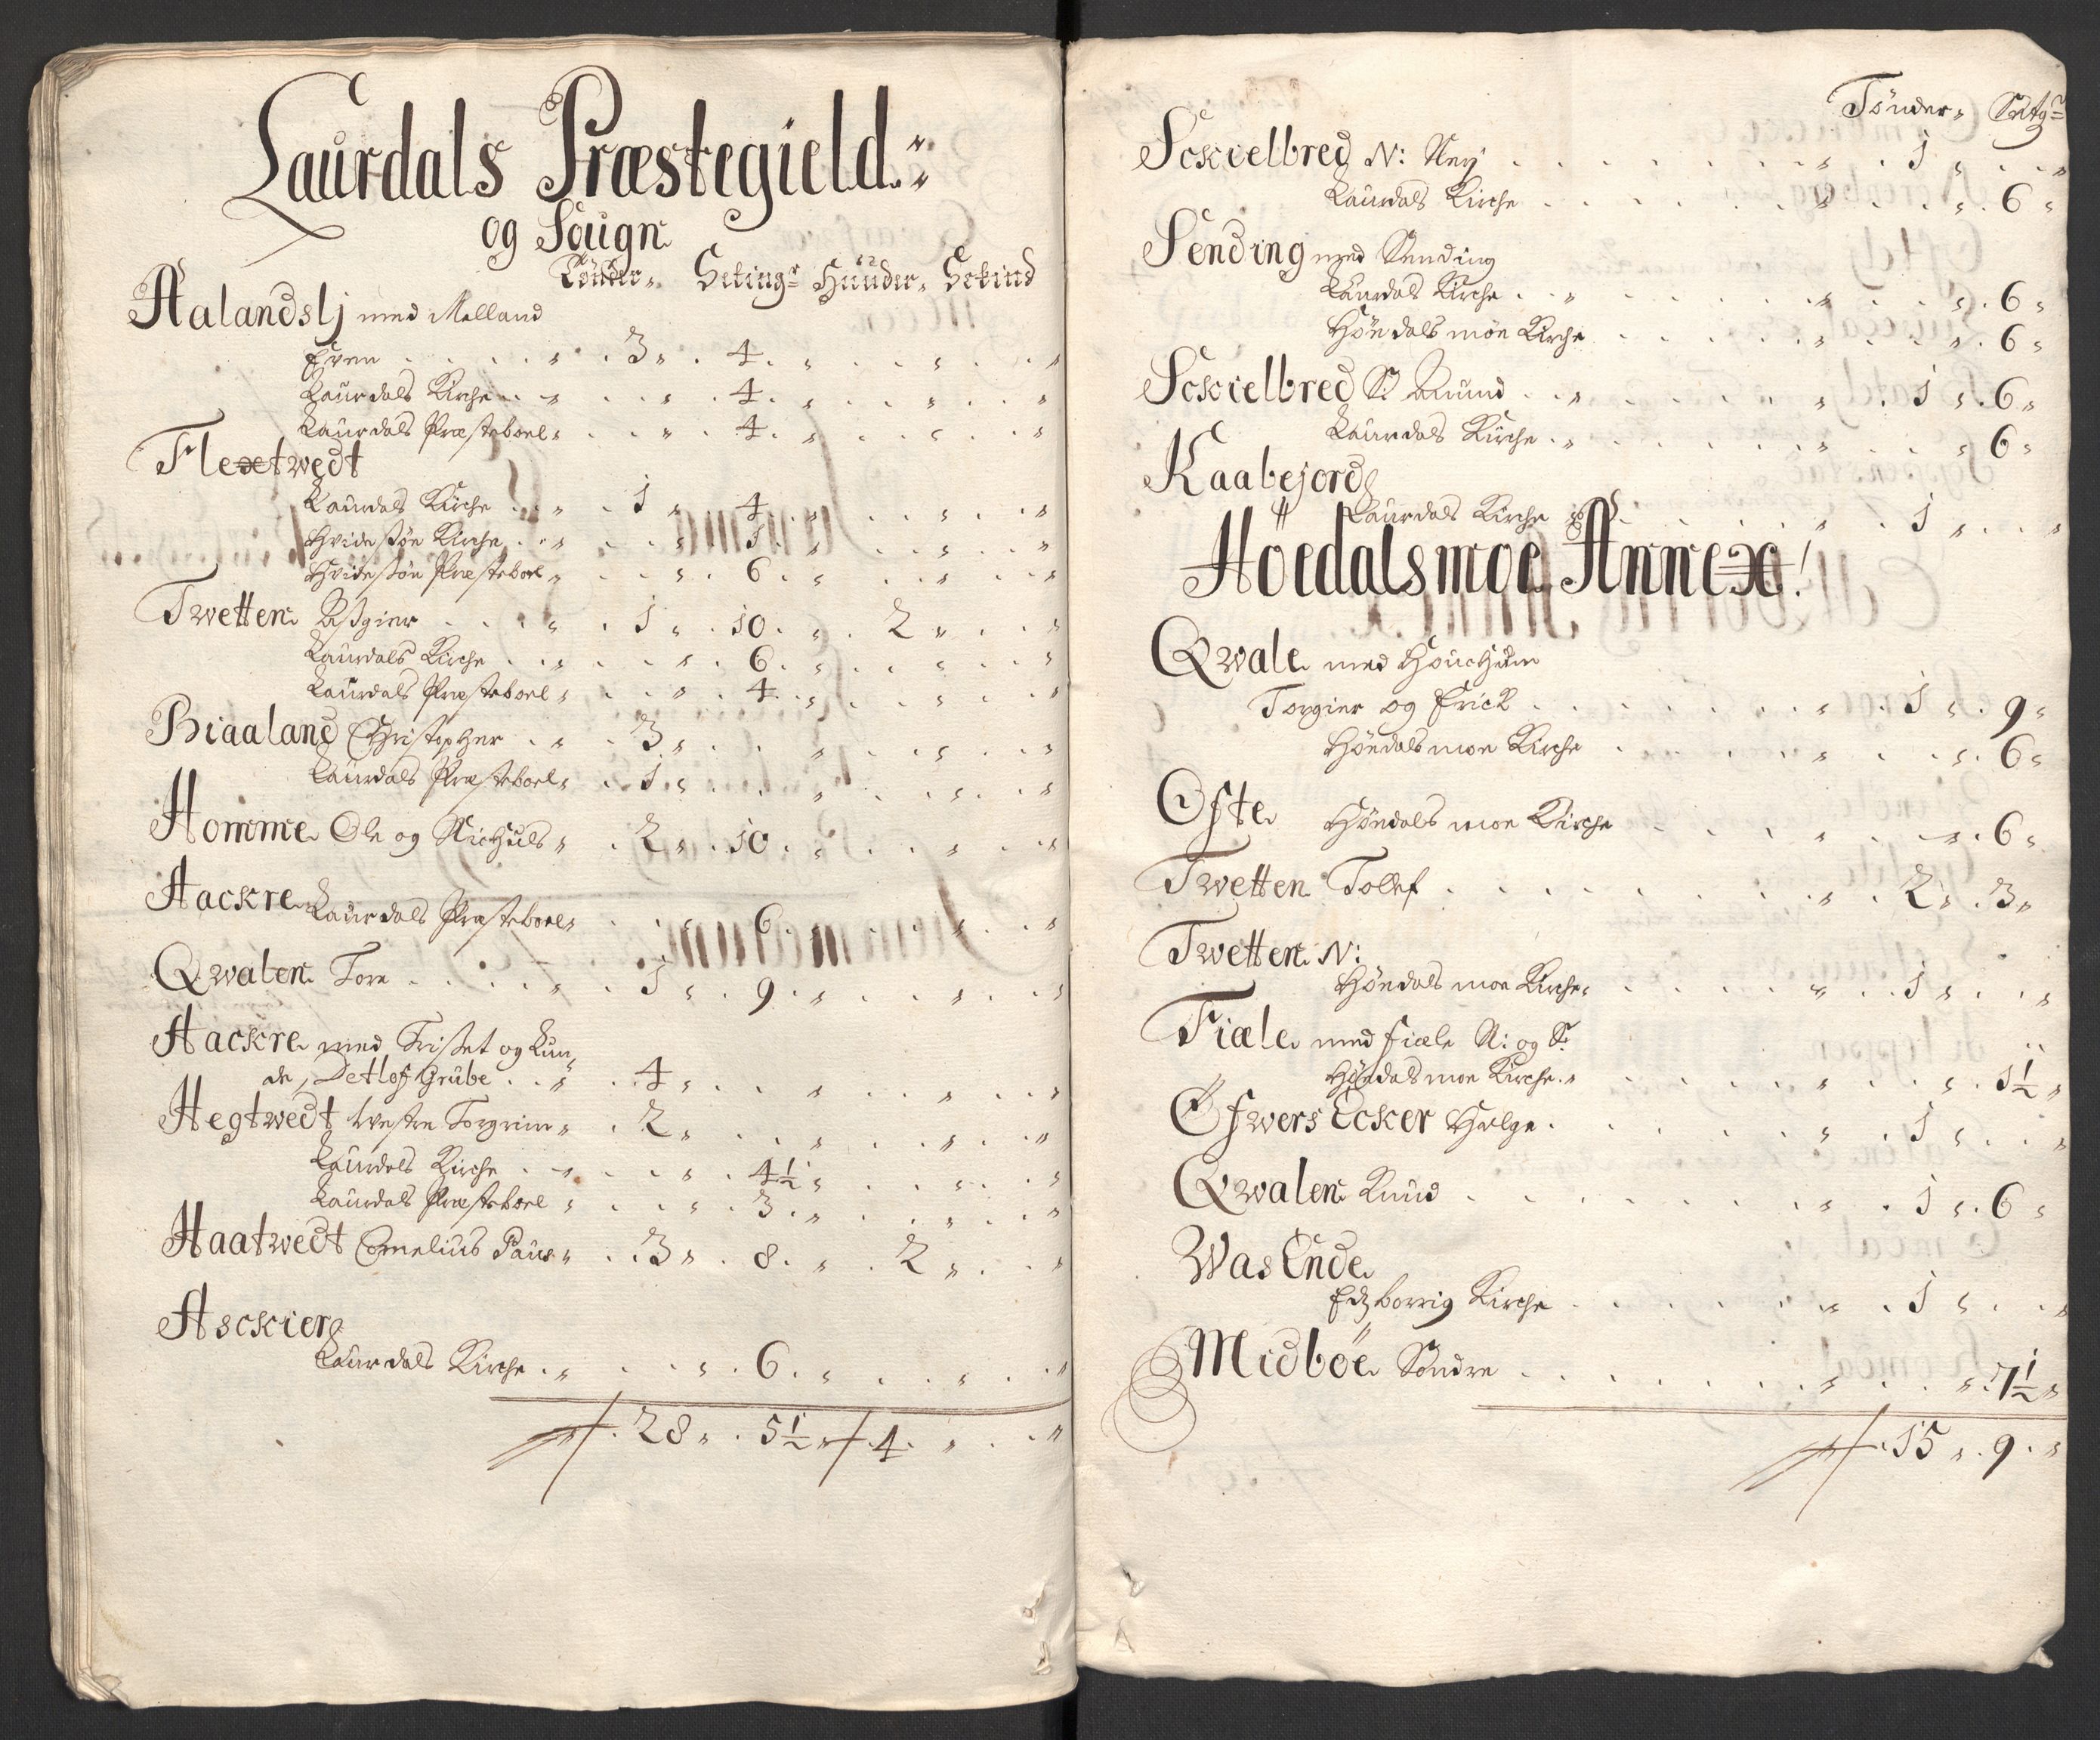 Laurdals Præstegield
og Sougn
Tönder, Setingr Huuder, Sckind
Aalandslj med Melland
Even . 3 . 4
Laurdals Kirche . 4
Laurdals Præsteboel . 4
Flextwedt
Laurdals Kirche . 1 . 4
Hvidesøe Kirche . 1
Hvidesøe Præsteboel . 6
Twetten Asgier . 1 . 10 . 2
Laurdals Kirche . 6
Laurdals Præsteboel . 4
Biaaland Christopher . 3
Laurdals Præsteboel . 1
Homme Ole og Nichuls . 2 . 10
Aackre Laurdals Præsteboel . 6
Qwalen Tore . 1 . 9
Aackre med Trisset og Lun
de, Detlof Grube . 4
Hegtwedt Westre Torgrim . 2
Laurdals Kirche . 4½
Laurdals Præsteboel . 3
Haatwedt Cornelius Paus . 3 . 8 . 2
Asckier
Laurdals Kirche . 6
28 . 5½ . 4
Tönder, Setgr
Sckielbred N: Neri . 1
Laurdals Kirche . 6
Sending med Sending
Laurdals Kirche . 6
Höedals moe Kirche . 6
Sckielbred S: Amund . 1 . 6
Laurdals Kirche . 6
Kaabejord
Laurdals Kirche . 1
Höedalsmoe Annex
Qwale med
Torgier og Erick . 1 . 9
Höedals moe Kirche . 6
Ofte Höedals moe Kirche . 6
Twetten Tollef . 2 . 3
Twetten N:
Höedals moe Kirche . 1
Fiæle med Fiæle N: og S:
Höedals moe Kirche . 1½
Öfwers Ecker Helge . 1
Qwalen Knud . 1 . 6
WasEnde
Eidzborrig Kirche . 1
Midböe Söndre . 7½
15 . 9